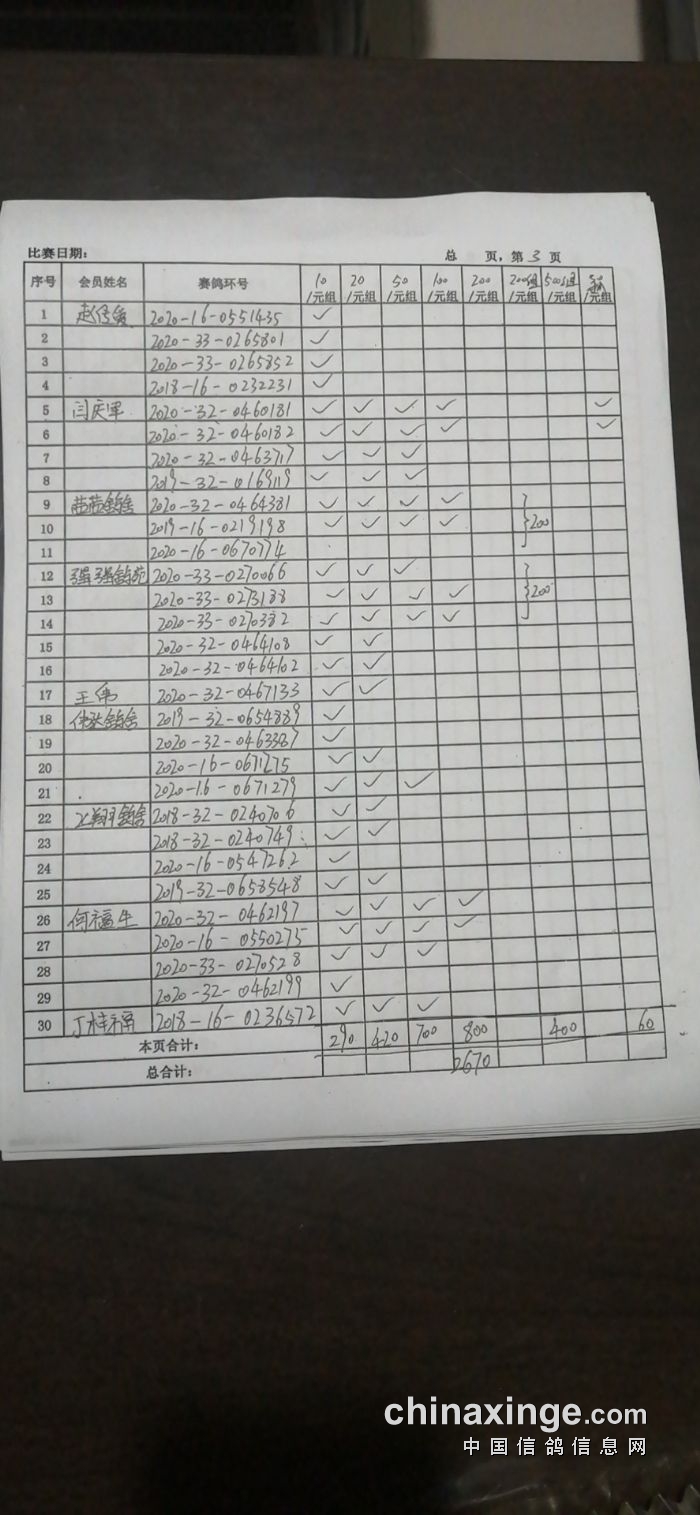 比赛日期： 总 页，第 3 页
序号 会员姓名 赛鸽环号 10/元组 20/元组 50/元组 100/元组 200/元组 200组/元组 500组/元组 /元组
1 2020-16-0551435 ✓
2 2020-33-0265801 ✓
3 2020-33-0265852 ✓
4 2018-16-0232231 ✓
5 闫庆军 2020-32-0460181 ✓ ✓ ✓ ✓ ✓
6 2020-32-0460182 ✓ ✓ ✓ ✓ ✓
7 2020-32-0463717 ✓ ✓ ✓
8 2019-32-0169119 ✓ ✓ ✓
9 茜茜鸽舍 2020-32-0464381 ✓ ✓ ✓ ✓
10 2019-16-0219198 ✓ ✓ ✓ ✓ }200
11 2020-16-0670774
12 强强鸽苑 2020-33-0270066 ✓ ✓ ✓
13 2020-33-0273188 ✓ ✓ ✓ ✓ }200
14 2020-33-0270382 ✓ ✓ ✓ ✓
15 2020-32-0464108 ✓ ✓
16 2020-32-0464102 ✓ ✓
17 王伟 2020-32-0467133 ✓ ✓
18 鸽舍 2019-32-0654889 ✓
19 2020-32-0463387 ✓
20 2020-16-0671275 ✓ ✓
21 2020-16-0671279 ✓ ✓ ✓
22 翔鸽舍 2018-32-0240706 ✓ ✓
23 2018-32-0240749 ✓ ✓
24 2020-16-0547262 ✓
25 2019-32-0658548 ✓ ✓
26 何福生 2020-32-0462197 ✓ ✓ ✓ ✓
27 2020-16-0550275 ✓ ✓ ✓ ✓
28 2020-33-0270528 ✓ ✓ ✓
29 2020-32-0462199 ✓
30 丁桂福 2018-16-0236572 ✓ ✓ ✓
本页合计： 290 420 700 800 400 60
总合计： 2670
chinaxinge.com
中国信鸽信息网